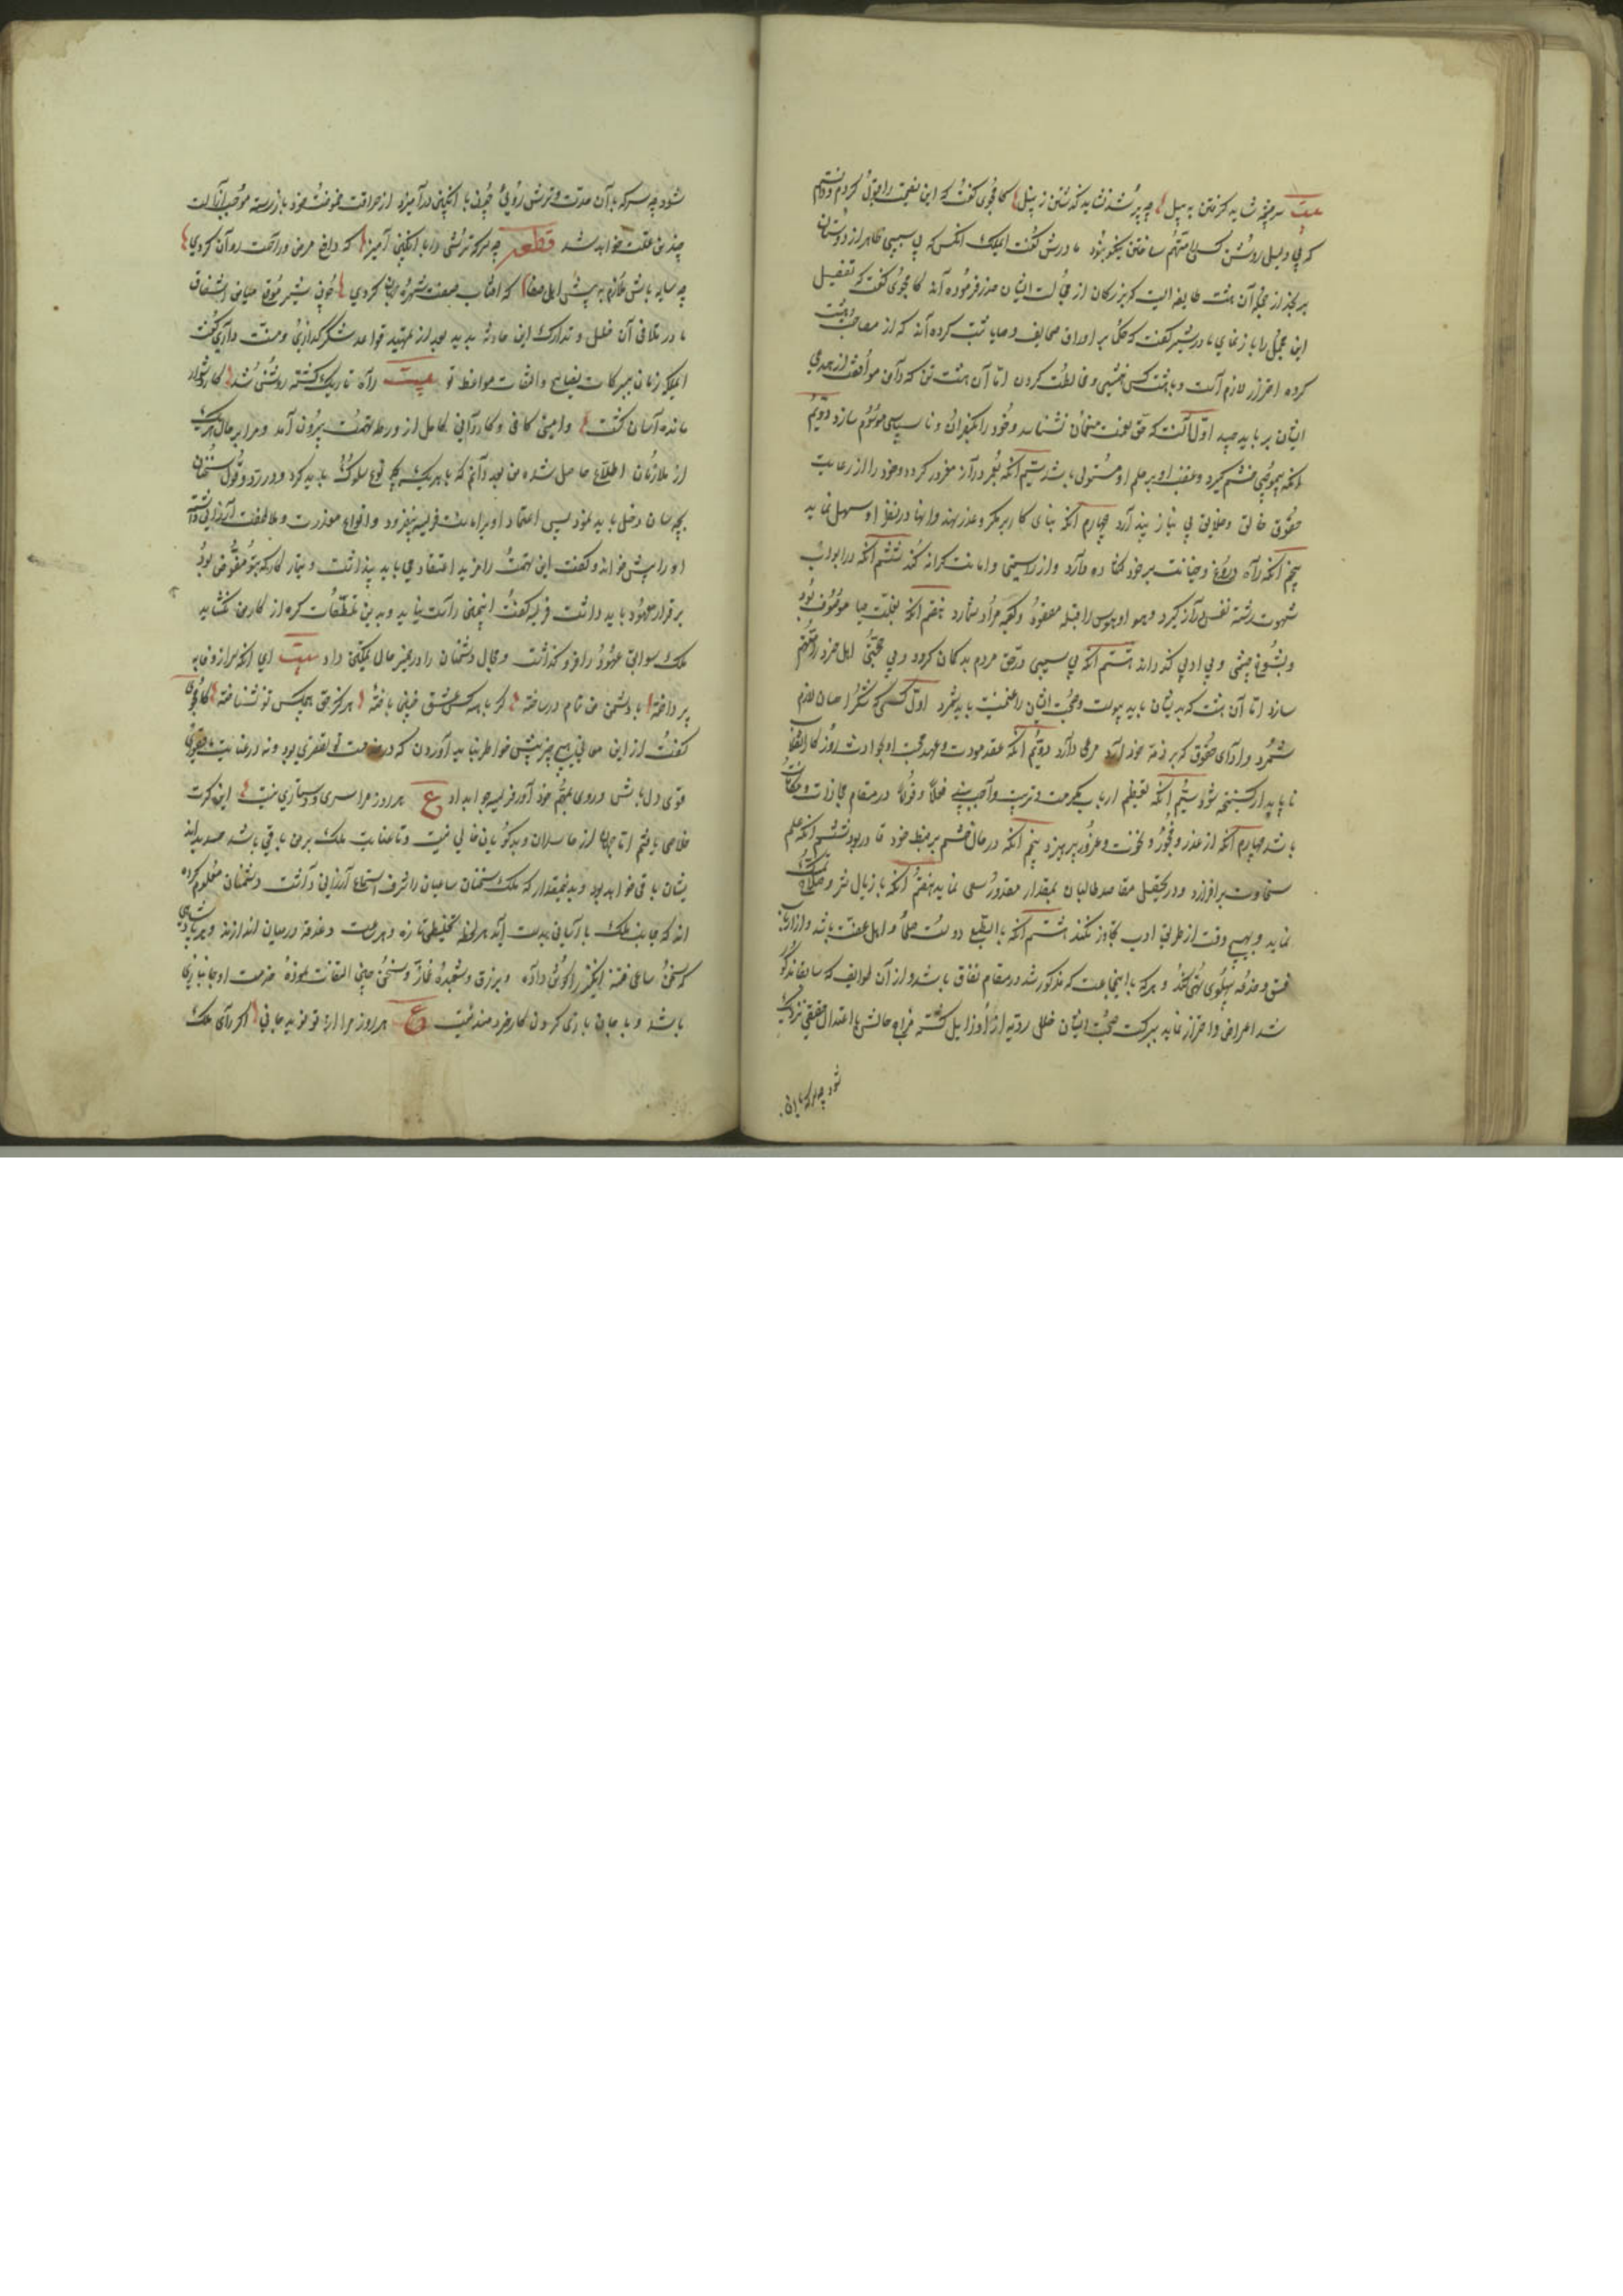 بیت سر چشمه شاید گرفتن به بیل چو پر شد نشاید گذشتن ز پیل کامجوی گفت که این نصیحت را قبول کردم و دانستم
که بی دلیل روشن کسی را متهم ساختن نیکو نبود مادرش گفت ای ملک انکس که بی سببی ظاهر از دوستان
برنجد از جمله آن هشت طایفه است که بزرکان از مجالست ایشان حذر فرموده اند کامجوی گفت که تفصیل
این مجمل را باز نمای مادر شیر گفت که حکما بر اوراق صحایف وصایا ثبت کرده اند که از مصاحبت هشت
کرده احتراز لازم است و با هشت کس همنشینی و مخالطت کردن اما آن هشت تن که دامن موافقت از همدمی
ایشان بر باید چید اول آنست که حق نعمت منعمان نشناسد و خود را بکفران و ناسپاسی موسوم سازد دویم
انکه بی موجبی خشم گیرد و غضب او بر حلم او مستولی باشد سیم آنکه بعمر دراز مغرور کردد و خود را از رعایت
حقوق خالق و خلایق بی نیاز پندارد چهارم آنکه بنای کار بر مکر و غدر نهد و انها در نظر او سهل نماید
پنجم آنکه راه دروغ و خیانت بر خود کشاده دارد و از راستی و امانت کرانه کند ششم آنکه در ابواب
شهوت رشته نفس دراز گیرد و هوا و هوس را قبله مقصود و کعبه مراد شمارد هفتم آنکه بقلت حیا موصوف بود
و بشوخ چشمی و بی ادبی گذراند هشتم آنکه بی سببی در حق مردم بد گمان کردد و بی حجتی اهل خرد را متهم
سازد اما آن هشت که بدیشان باید پیوست و صحبت ایشان را غنیمت باید شمرد اول کسی که شکر احسان لازم
شمرد و ادای حقوق که بر ذمه خود آید مرعی دارد دویم آنکه عقد مودت و عهد محبت او بحوادث روزگار انقلاب
ناپایدار گسیخته نشود سیم آنکه تعظیم ارباب مکرمت و تربیت واجب بیند فعلا و قولا در مقام مجازات و مکافات
باشد چهارم آنکه از غدر و فجور و نخوت و غرور بپرهیزد پنجم آنکه در حال خشم بر ضبط خود قادر بود ششم آنکه علم
سخاوت بر افرازد و در تحصیل مقاصد طالبان بمقدار مقدور سعی نماید هفتم آنکه باذیال شرم و صلاح تمسک
نماید و بهیچ وقت از طریق ادب تجاوز نکند هشتم آنکه بالطبع دوست صلحا و اهل عفت باشد و از ارباب
فسق و خدعه پهلو تهی کند و هر که با اینجماعت که مذکور شد در مقام نفاق باشد و از آن طوایف که سابقا مذکور
شد اعراض و احتراز نماید ببرکت صحبت ایشان خلل ردیه از او زایل گشته مزاج حالش باعتدال حقیقی نزدیک
شود چه سرکه با آن
شود چه سرکه با آن حدت و ترش رویی چون با انگبین درآمیزد از حرافت حموضت خود باز رسته موجب ازالت
چندین علت خواهد شد قطعه چو سرکه ترشی دارد با انگبین آمیز که دفع مرض و راحت روان کردی
چو سایه باش ملازم به پیش اهل صفا که آفتاب صفت شهره جهان کردی چون شیر فوق حیات اشفاق
مادر تلافی آن خلل و تدارک این حادثه بدید بعد از تمهید قواعد شکر گذاری و منت داری گفت
ای ملکه زمان ببرکات نصایح و التفات مواعظ تو بیت راه تاریک گشته روشن شد کار دشوار
مانده آسان گشت وامینی کافی و کاردانی کامل از ورطه تهمت بیرون آمد و مرا بر حال هر یک
از ملازمان اطلاع حاصل شده من بعد دانم که با هر یک بچه نوع سلوک باید کرد و در رد و قبول سخنان
بچه سان دخل باید نمود پس اعتماد او بر امانت فریسه بیفزود و انواع معذرت و ملاطفت ارزانی داشته
او را پیش خواند و گفت این تهمت را مزید اعتقاد می باید پنداشت و تیمار کار که بتو مفوض بود
بر قرار معهود باید داشت فریسه گفت اینچنین راست نیاید و بدین تلطفات گره از کار من نگشاید
ملک سوابق عهود را فرو گذاشت و مجال دشمنان را در ضمیر حال ممکن داد بیت ای انکه سر از وفا
پرداخته با دشمن من تمام در ساخته گر با همه کس عشق چنین باخته هرگز حق هیچکس تو نشناخته کامجوی
گفت از این معانی هیچ چیز پیش خاطر نباید آوردن که در خدمت تو تقصیری بود و نه در عنایت ما قصوری
قوی دل باش و روی بمهم خود آور فریسه جواب داد ع هر روز مرا سری و دستاری نیست این کرت
خلاصی یافتم اما جهان از حاسدان و بدگویان خالی نیست و تا عنایت ملک بر من باقی باشد حسد بدان
ایشان باقی خواهد بود و بدینمقدار که ملک سخنان ساعیان را شرف استماع ارزانی داشت دشمنان معلوم کرده
اند که جانب ملک با آسانی بدست آید هر لحظه تخلیطی تازه و هر ساعت وغدغه در میان اندازند و هر پادشاهی
که سخن ساعی فتنه انگیز را گوش داده و بر زرق و شعبده غماز و سخن چین التفات نموده خدمت او جانبازی
باشد و با جان بازی کردن کار خردمند نیست ع هر روز مرا از تو نو بد جانی اگر رای ملک